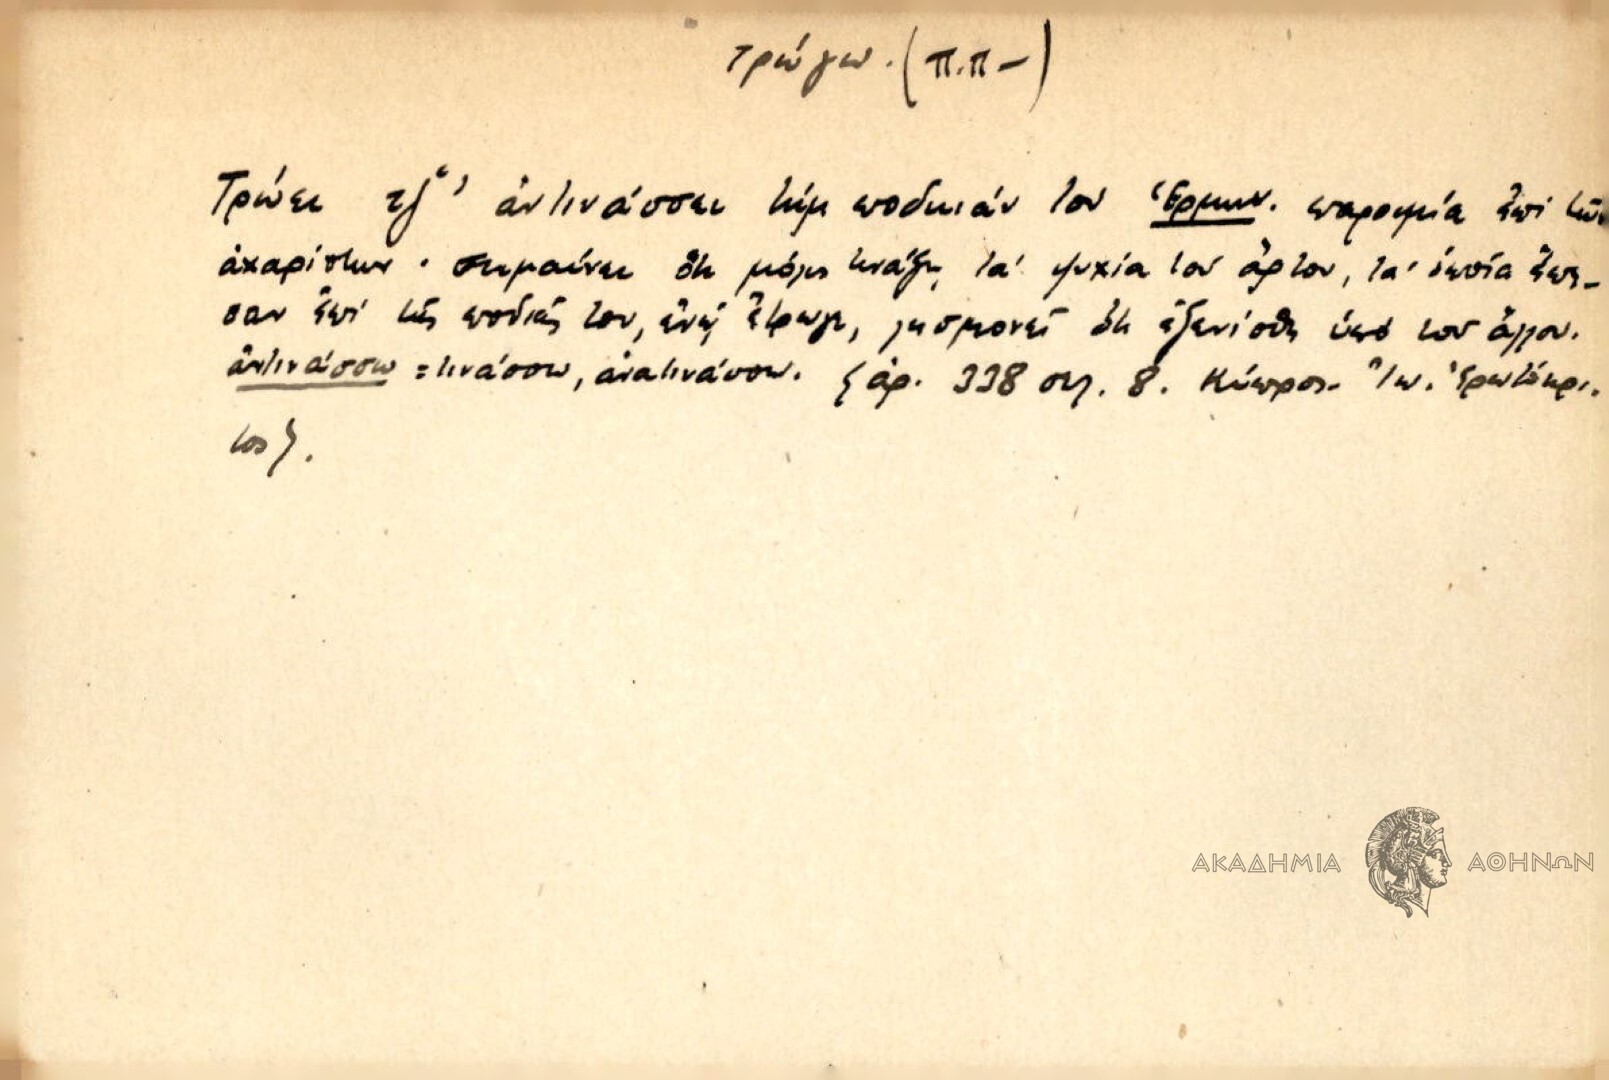 τρώγω. (π.π-)
Τρώει τζ̌' ἀντινάσσει τὴμ ποδκιάν του Ἑρμην. παροιμία ἐπὶ τῶν
ἀχαρίστων· σημαίνει ὅτι μόλις τινάξῃ τὰ ψυχία τοῦ ἄρτου, τὰ ὁποῖα ἔπε-
σαν ἐπὶ τῆς ποδιᾶς του, ἐνῷ ἔτρωγε, λησμονεῖ ὅτι ἐξενίσθη ὑπὸ τοῦ ἄλλου.
ἀντινάσσω = τινάσσω, ἀνατινάσσω. {ἀρ. 338 σελ. 8. Κύπρος- Ἰω. Ἐρωτόκρι-
τος}.
ΑΚΑΔΗΜΙΑ ΑΘΗΝΩΝ